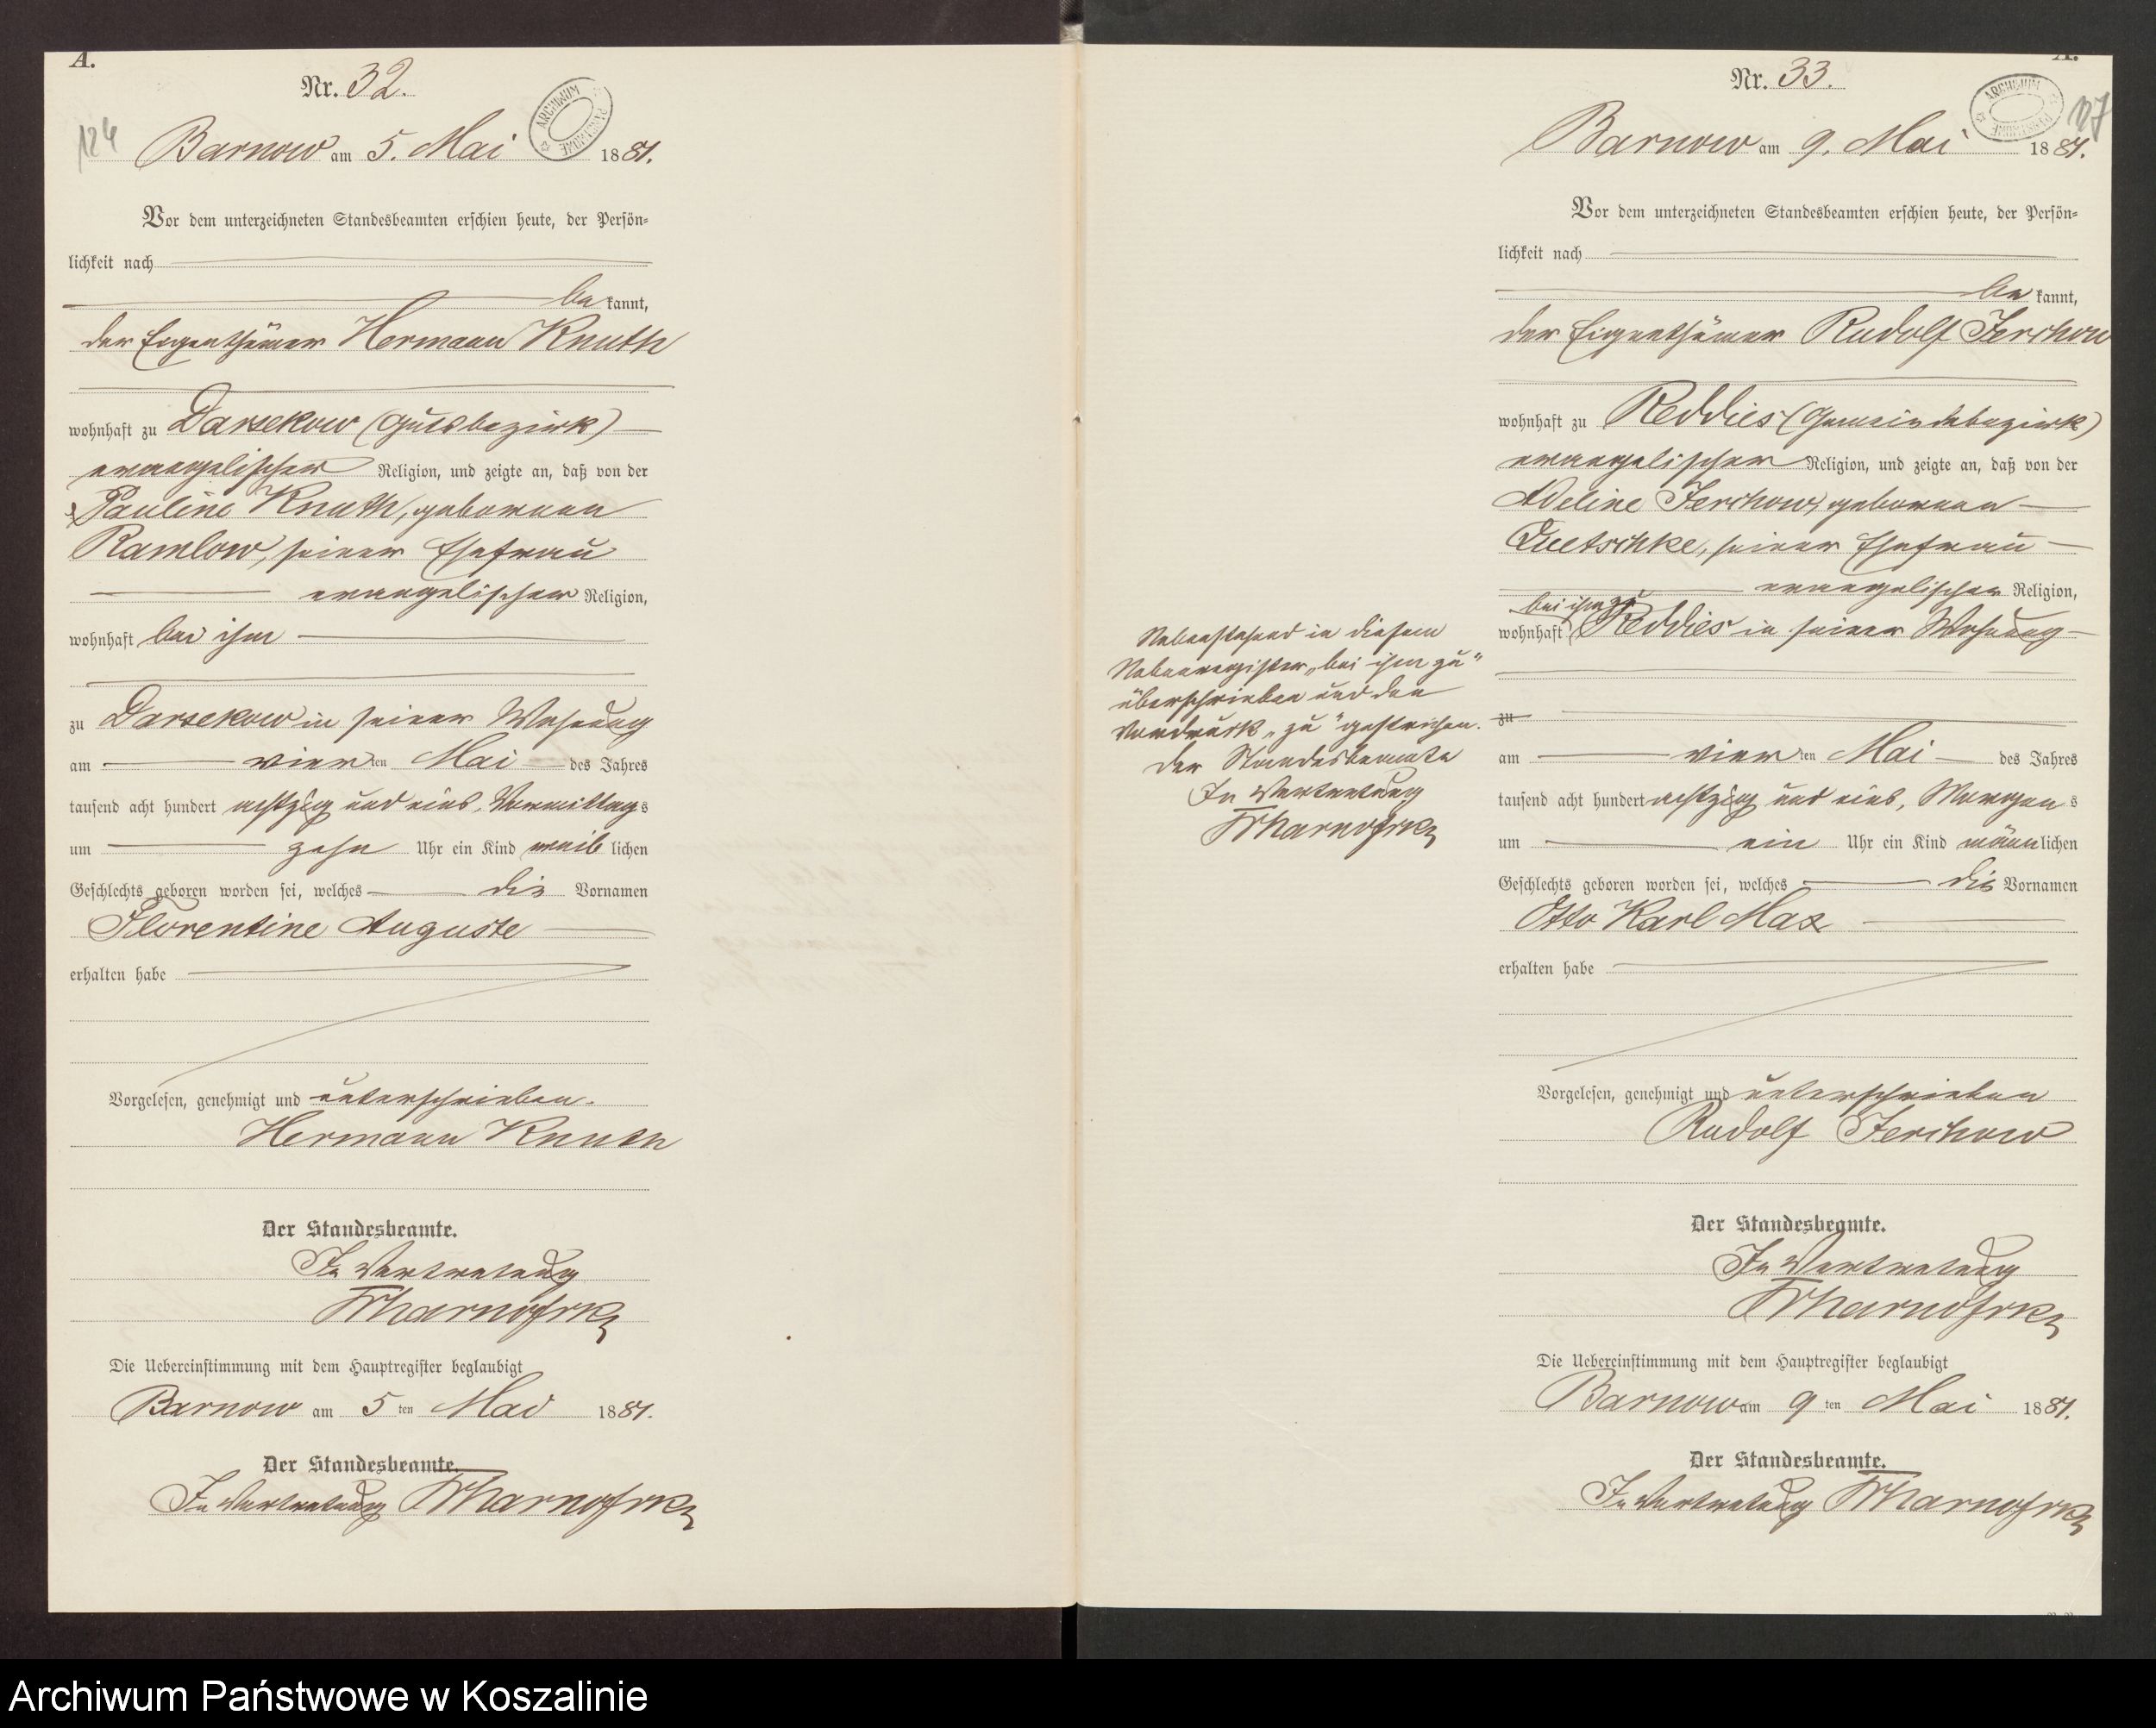 A.
Nr. 32.
124
ARCHIWUM PAŃSTWOWE
Barnow am 5. Mai 1881.
Vor dem unterzeichneten Standesbeamten erschien heute, der Persön-
lichkeit nach
bekannt,
der Eigenthümer Hermann Knuth
wohnhaft zu Darsekow (Gutsbezirk)
evangelischer Religion, und zeigte an, daß von der
Pauline Knuth, geborenen
Ramlow, seiner Ehefrau
evangelischer Religion,
wohnhaft bei ihm
zu Darsekow in seiner Wohnung
am vierten Mai des Jahres
tausend acht hundert achtzig und eins, Vormittags
um zehn Uhr ein Kind weiblichen
Geschlechts geboren worden sei, welches die Vornamen
Florentine Auguste
erhalten habe
Vorgelesen, genehmigt und unterschrieben.
Hermann Knuth
Der Standesbeamte.
In Vertretung
Die Uebereinstimmung mit dem Hauptregister beglaubigt
Barnow am 5ten Mai 1881.
Der Standesbeamte.
In Vertretung
A.
Nr. 33.
ARCHIWUM PAŃSTWOWE
Barnow am 9. Mai 1881.
Vor dem unterzeichneten Standesbeamten erschien heute, der Persön-
lichkeit nach
bekannt,
der Eigenthümer Rudolf Jerchow
wohnhaft zu Reddies (Gemeindebezirk)
evangelischer Religion, und zeigte an, daß von der
Adeline Jerchow, geborenen
Quetschke, seiner Ehefrau
evangelischer Religion,
bei ihm zu
wohnhaft Reddies in seiner Wohnung
zu
am vierten Mai des Jahres
tausend acht hundert achtzig und eins, Morgens
um ein Uhr ein Kind männlichen
Geschlechts geboren worden sei, welches die Vornamen
Otto Karl Max
erhalten habe
Vorgelesen, genehmigt und unterschrieben
Rudolf Jerchow
Der Standesbeamte.
In Vertretung
Die Uebereinstimmung mit dem Hauptregister beglaubigt
Barnow am 9ten Mai 1881.
Der Standesbeamte.
In Vertretung
Nebenstehend in diesem
Nebenregister „bei ihm zu"
überschrieben und den
Vordruck „zu" gestrichen.
Der Standesbeamte
In Vertretung
Archiwum Państwowe w Koszalinie